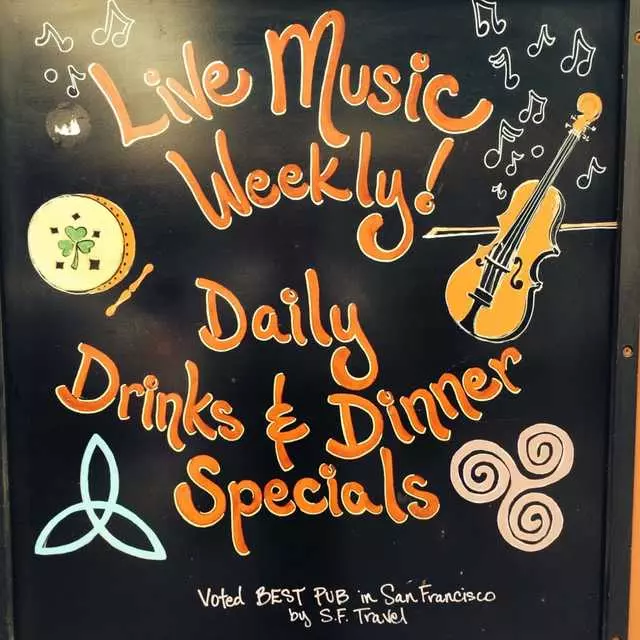 Live Music
Weekly!
Daily
Drinks & Dinner
Specials
Voted BEST PUB in San Francisco
by S.F. Travel